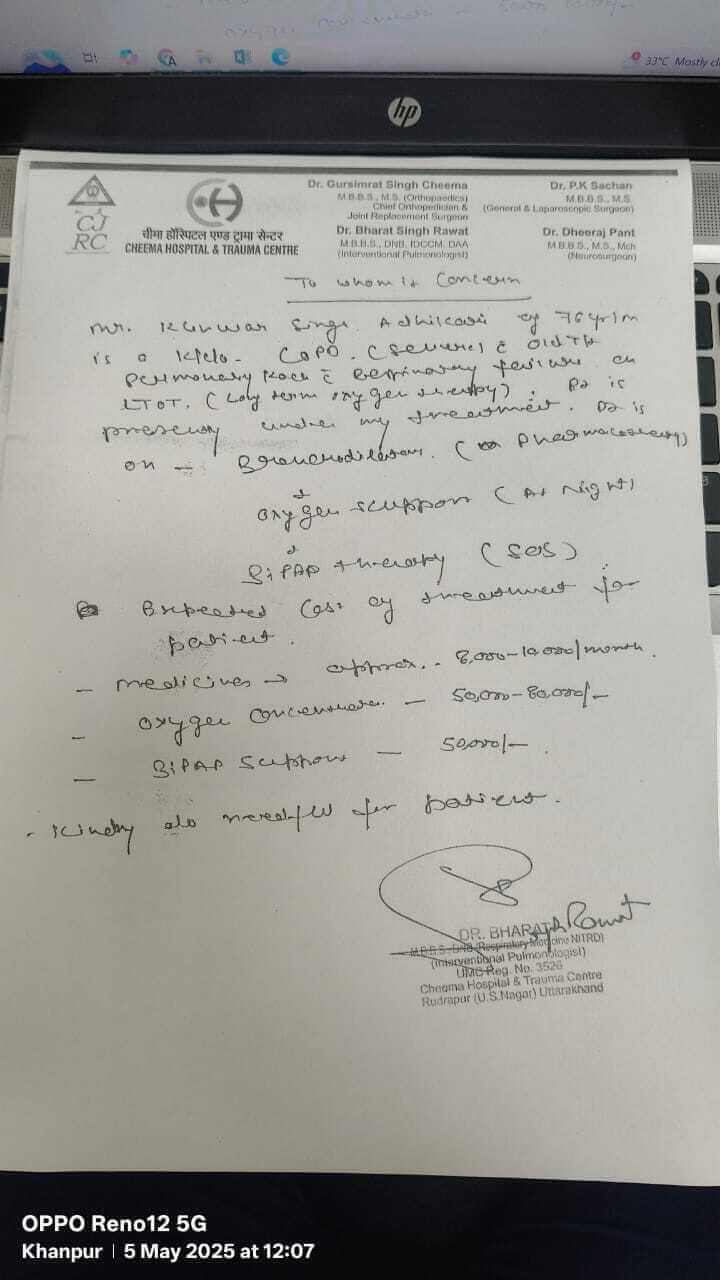 33°C Mostly cl
hp
CJ
RC
CH
चीमा हॉस्पिटल एण्ड ट्रामा सेन्टर
CHEEMA HOSPITAL & TRAUMA CENTRE
Dr. Gursimrat Singh Cheema
M.B.B.S., M.S. (Orthopaedics)
Chief Orthopedician &
Joint Replacement Surgeon
Dr. Bharat Singh Rawat
M.B.B.S., DNB, IDCCM, DAA
(Interventional Pulmonologist)
Dr. P.K Sachan
M.B.B.S., M.S.
(General & Laparoscopic Surgeon)
Dr. Dheeraj Pant
M.B.B.S., M.S., Mch
(Neurosurgeon)
To whom it Concern
Mr. Kunwar Singh Adhikari of 76yr/m
is a k/c/o - COPD. (severe) c̄ old TB
Pulmonary Koch c̄ Respiratory failure on
LTOT. (Long term oxygen therapy). Pt is
presently under my treatment. Pt is
on - Bronchodilators. (Pharmacotherapy)
+
oxygen support (At Night)
+
BiPAP therapy (SOS)
Expected Cost of treatment for
patient.
- medicines → approx. - 8,000-10,000/month.
- oxygen concentrator - 50,000-80,000/-
- BiPAP Support - 50,000/-.
- Kindly do needful for patient.
Rawat
DR. BHARAT
M.B.B.S., DNB (Respiratory Medicine NITRD)
(Interventional Pulmonologist)
UMC Reg. No. 3526
Cheema Hospital & Trauma Centre
Rudrapur (U.S.Nagar) Uttarakhand
OPPO Reno12 5G
Khanpur | 5 May 2025 at 12:07